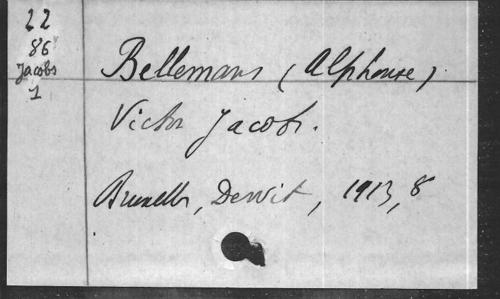 22
86
Jacobs
1
Bellemans (Alphonse)
Victor Jacobs.
Bruxelles, Dewit, 1913, 8